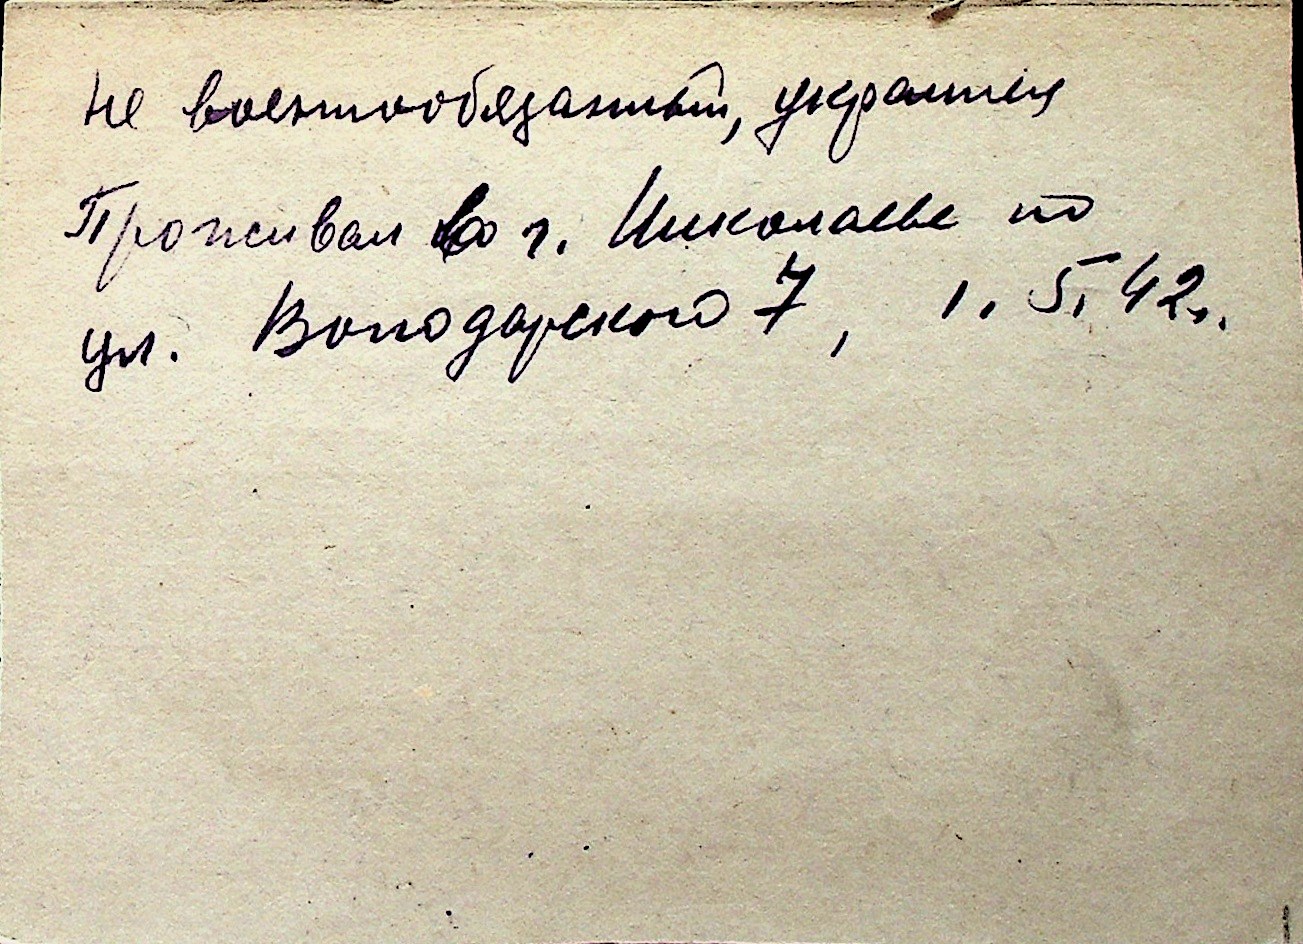 не военнообязанный, украинец
Проживал в г. Николаеве по
ул. Володарского 7, 1. 5. 42г.